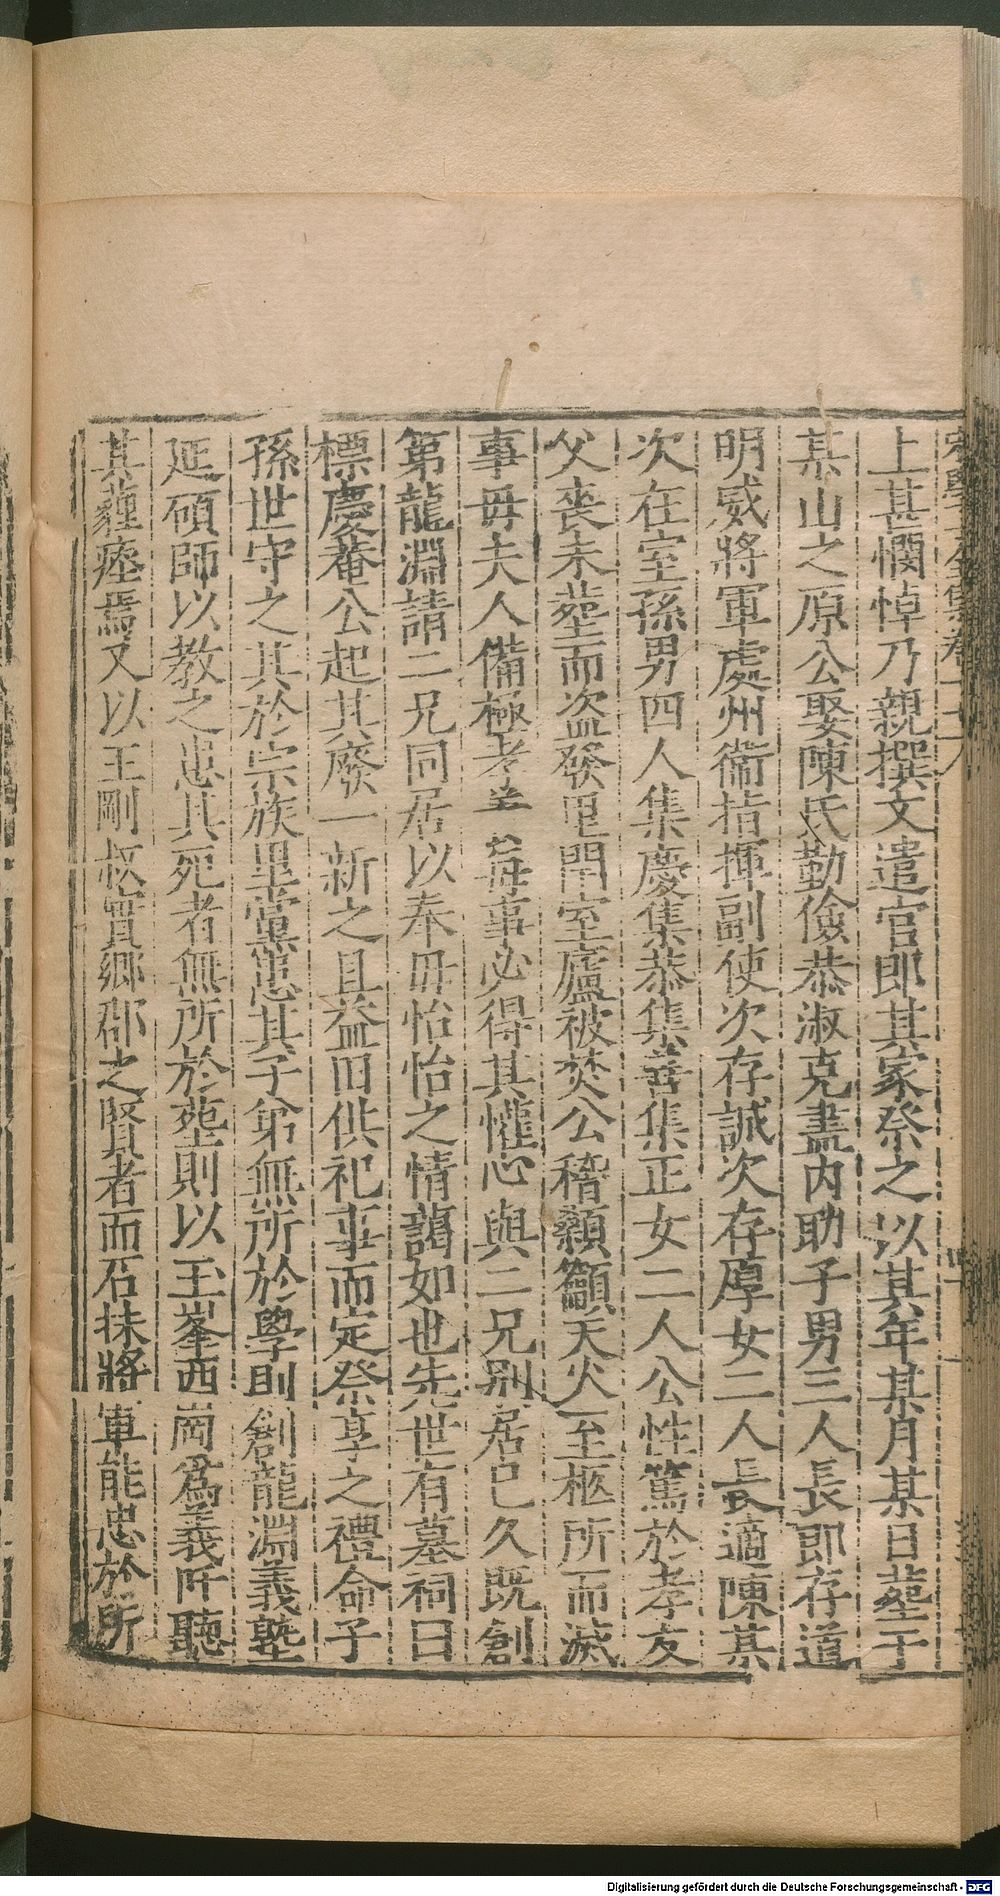 上甚憫悼乃親撰文遣官即其家祭之以其年某月某日塟于
某山之原公娶陳氏勤儉恭淑克盡内助子男三人長即存道
明威將軍處州衞指揮副使次存誠次存厚女二人長適陳某
次在室孫男四人集慶集恭集善集正女二人公性篤於孝友
父喪未塟而盗發里閈室廬被焚公稽顙籲天火至柩所而滅
事毋夫人備極孝羞每事必得其懽心與二兄别居已久既創
第龍淵請二兄同居以奉毋怡怡之情藹如也先世有墓祠曰
標慶菴公起其廢一新之且益旧供祀事而定祭享之禮命子
孫世守之其於宗族里黨患其子弟無所於學則創龍淵義塾
延碩師以教之患其死者無所於塟則以玉峯西崗爲義阡聽
其薶瘞焉又以王剛叔實鄉郡之賢者而石抹將軍能忠於所
Digitalisierung gefördert durch die Deutsche Forschungsgemeinschaft - DFG